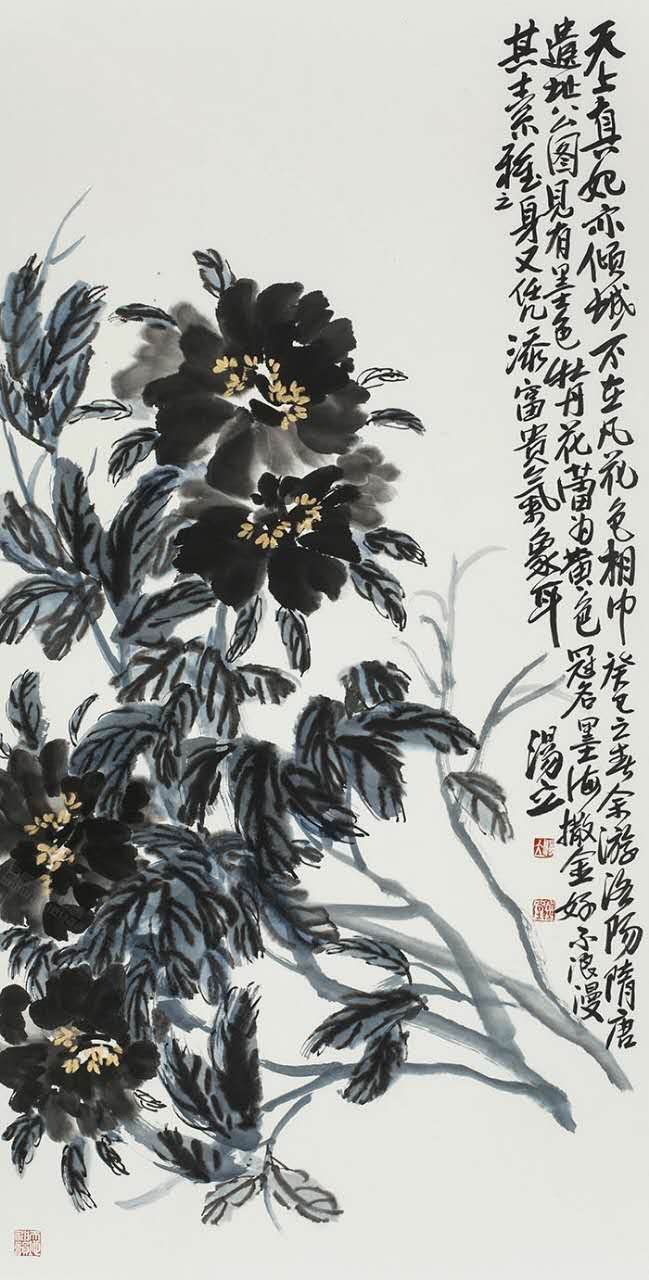 天上真妃亦倾城不在凡花色相中 癸巳立春余游洛阳隋唐
遗址公园见有黑色牡丹花蕾为黄色冠名墨海撒金好不浪漫
其素雅之身又凭添富贵气象耳
汤立